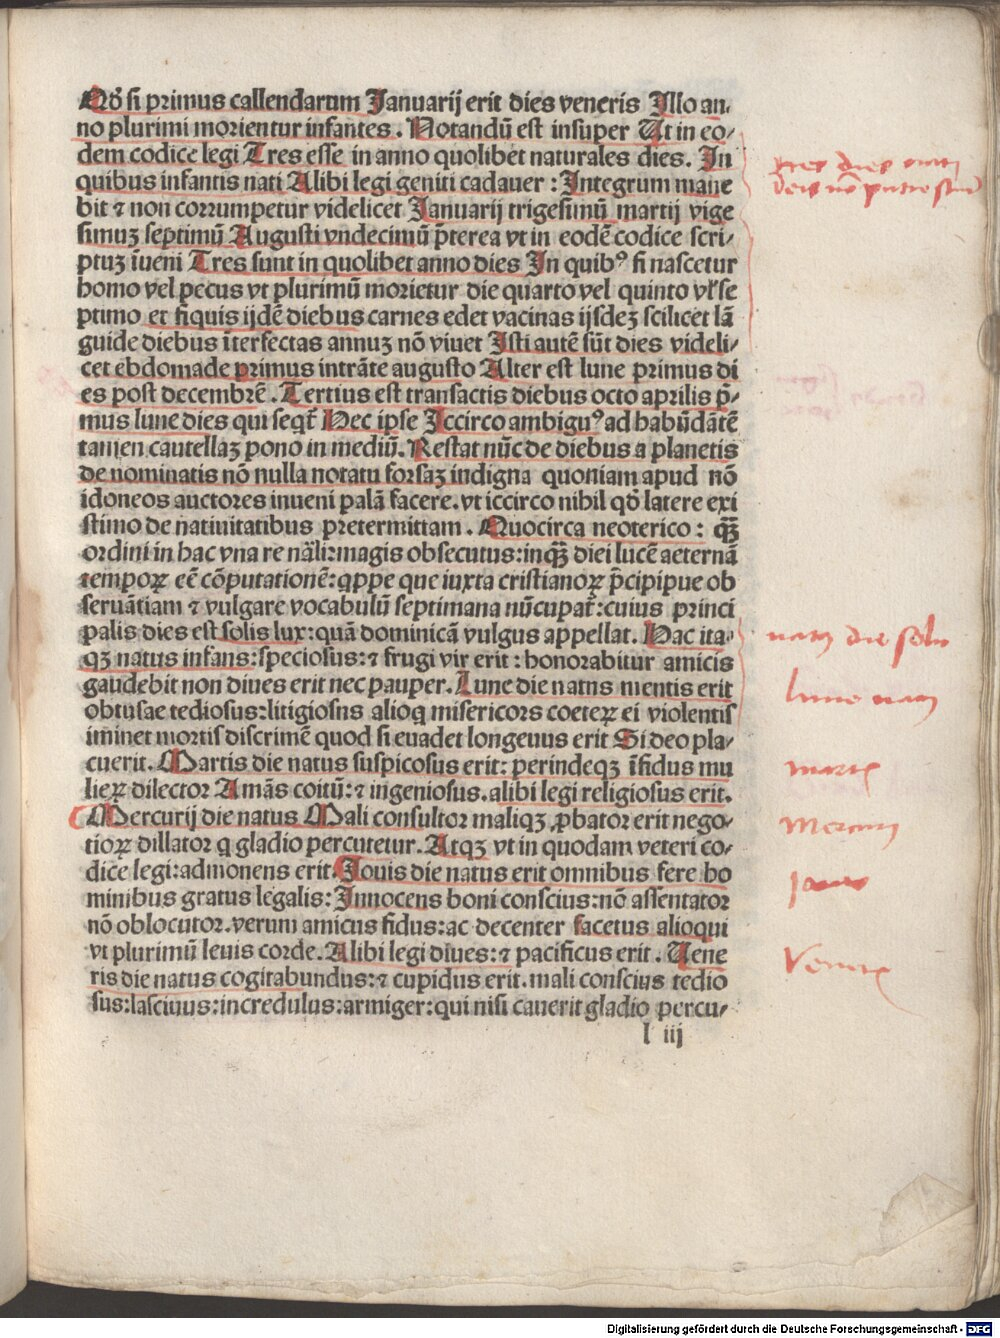 Qđ si primus callendarum Januarij erit dies veneris Illo an-
no plurimi morientur infantes . Notandū est insuper Ut in eo/
dem codice legi Tres esse in anno quolibet naturales dies. In
quibus infantis nati Alibi legi geniti cadauer : Integrum mane
bit ⁊ non corrumpetur videlicet Januarij trigesimū martij vige
simuz septimū Augusti vndecimū p̄terea vt in eodē codice scri/
ptuz īueni Tres sunt in quolibet anno dies In quibꝰ si nascetur
homo vel pecus vt plurimū morietur die quarto vel quinto vl̕ se
ptimo et siquis ijsdē diebus carnes edet vacinas ijsdez scilicet lā
guide diebus īterfectas annuz nō viuet Isti autē sūt dies videli/
cet ebdomade primus intrāte augusto Alter est lune primus di
es post decembrē . Tertius est transactis diebus octo aprilis p̄/
mus lune dies qui seqt̄ Hec ipse Iccirco ambiguꝰ ad habūdātē
tamen cautellaz pono in mediū. Restat nūc de diebus a planetis
de nominatis nō nulla notatu forsaz indigna quoniam apud nō
idoneos auctores inueni palā facere. vt iccirco nihil qđ latere exi
stimo de natiuitatibus pretermittam . Quocirca neoterico : qꝫ̄
ordini in hac vna re nāli: magis obsecutus: inqꝫ̄ diei lucē aeternā
temporꝝ eē cōputationē: qppe que iuxta cristianorꝝ p̄cipipue ob
seruātiam ⁊ vulgare vocabulū septimana nūcupat̄: cuius princi
palis dies est solis lux: quā dominicā vulgus appellat. Hac ita-
qꝫ natus infans: speciosus: ⁊ frugi vir erit : honorabitur amicis
gaudebit non diues erit nec pauper. Lune die natus mentis erit
obtusae tediosus: litigiosus alioq misericors coeterꝝ ei violentis
iminet mortis discrimē quod si euadet longeuus erit Si deo pla/
cuerit. Martis die natus suspicosus erit: perindeqꝫ īfidus mu
lierꝝ dilector Amās coitū: ⁊ ingeniosus. alibi legi religiosus erit.
Mercurij die natus Mali consultor maliqꝫ ꝓbator erit nego/
tiorꝝ dillator q gladio percutetur. Atqꝫ vt in quodam veteri co/
dice legi: admonens erit. Jouis die natus erit omnibus fere ho
minibus gratus legalis: Innocens boni conscius: nō assentator
nō oblocutor. verum amicus fidus: ac decenter facetus alioqui
vt plurimū leuis corde. Alibi legi diues: ⁊ pacificus erit . Uene
ris die natus cogitabundus: ⁊ cupidus erit. mali conscius tedio
sus: lasciuus: incredulus: armiger: qui nisi cauerit gladio percu/
l iij
tres dies
die solis
lune
martis
Mercurij
Jouis
Veneris
Digitalisierung gefördert durch die Deutsche Forschungsgemeinschaft - DFG